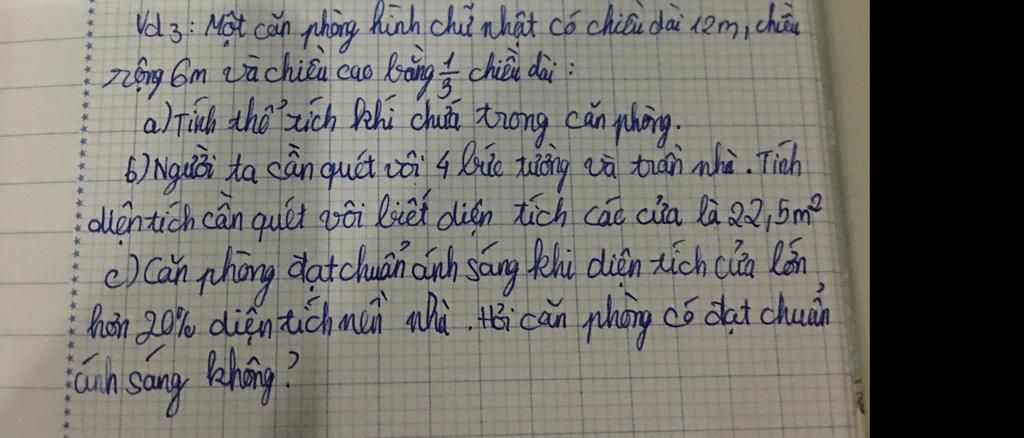 Vd3: Một căn phòng hình chữ nhật có chiều dài 12m, chiều
rộng 6m và chiều cao bằng 1/3 chiều dài:
a) Tính thể tích khí chứa trong căn phòng.
b) Người ta cần quét vôi 4 bức tường và trần nhà. Tính
diện tích cần quét vôi biết diện tích các cửa là 22,5m²
c) Căn phòng đạt chuẩn ánh sáng khi diện tích cửa lớn
hơn 20% diện tích nền nhà. Hỏi căn phòng có đạt chuẩn
ánh sáng không?